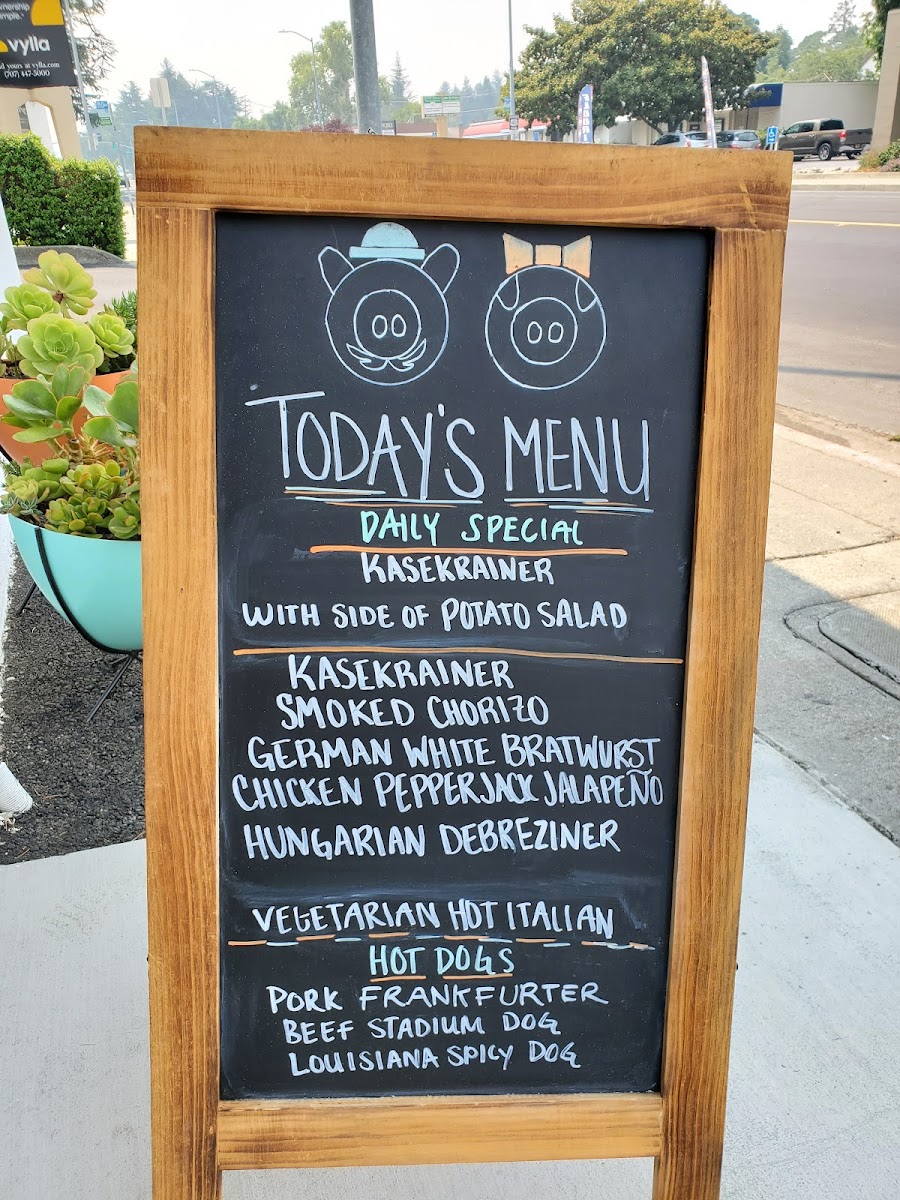 vylla
(707) 447-5000
TODAY'S MENU
DAILY SPECIAL
KASEKRAINER
WITH SIDE OF POTATO SALAD
KASEKRAINER
SMOKED CHORIZO
GERMAN WHITE BRATWURST
CHICKEN PEPPERJACK JALAPEÑO
HUNGARIAN DEBREZINER
VEGETARIAN HOT ITALIAN
HOT DOGS
PORK FRANKFURTER
BEEF STADIUM DOG
LOUISIANA SPICY DOG